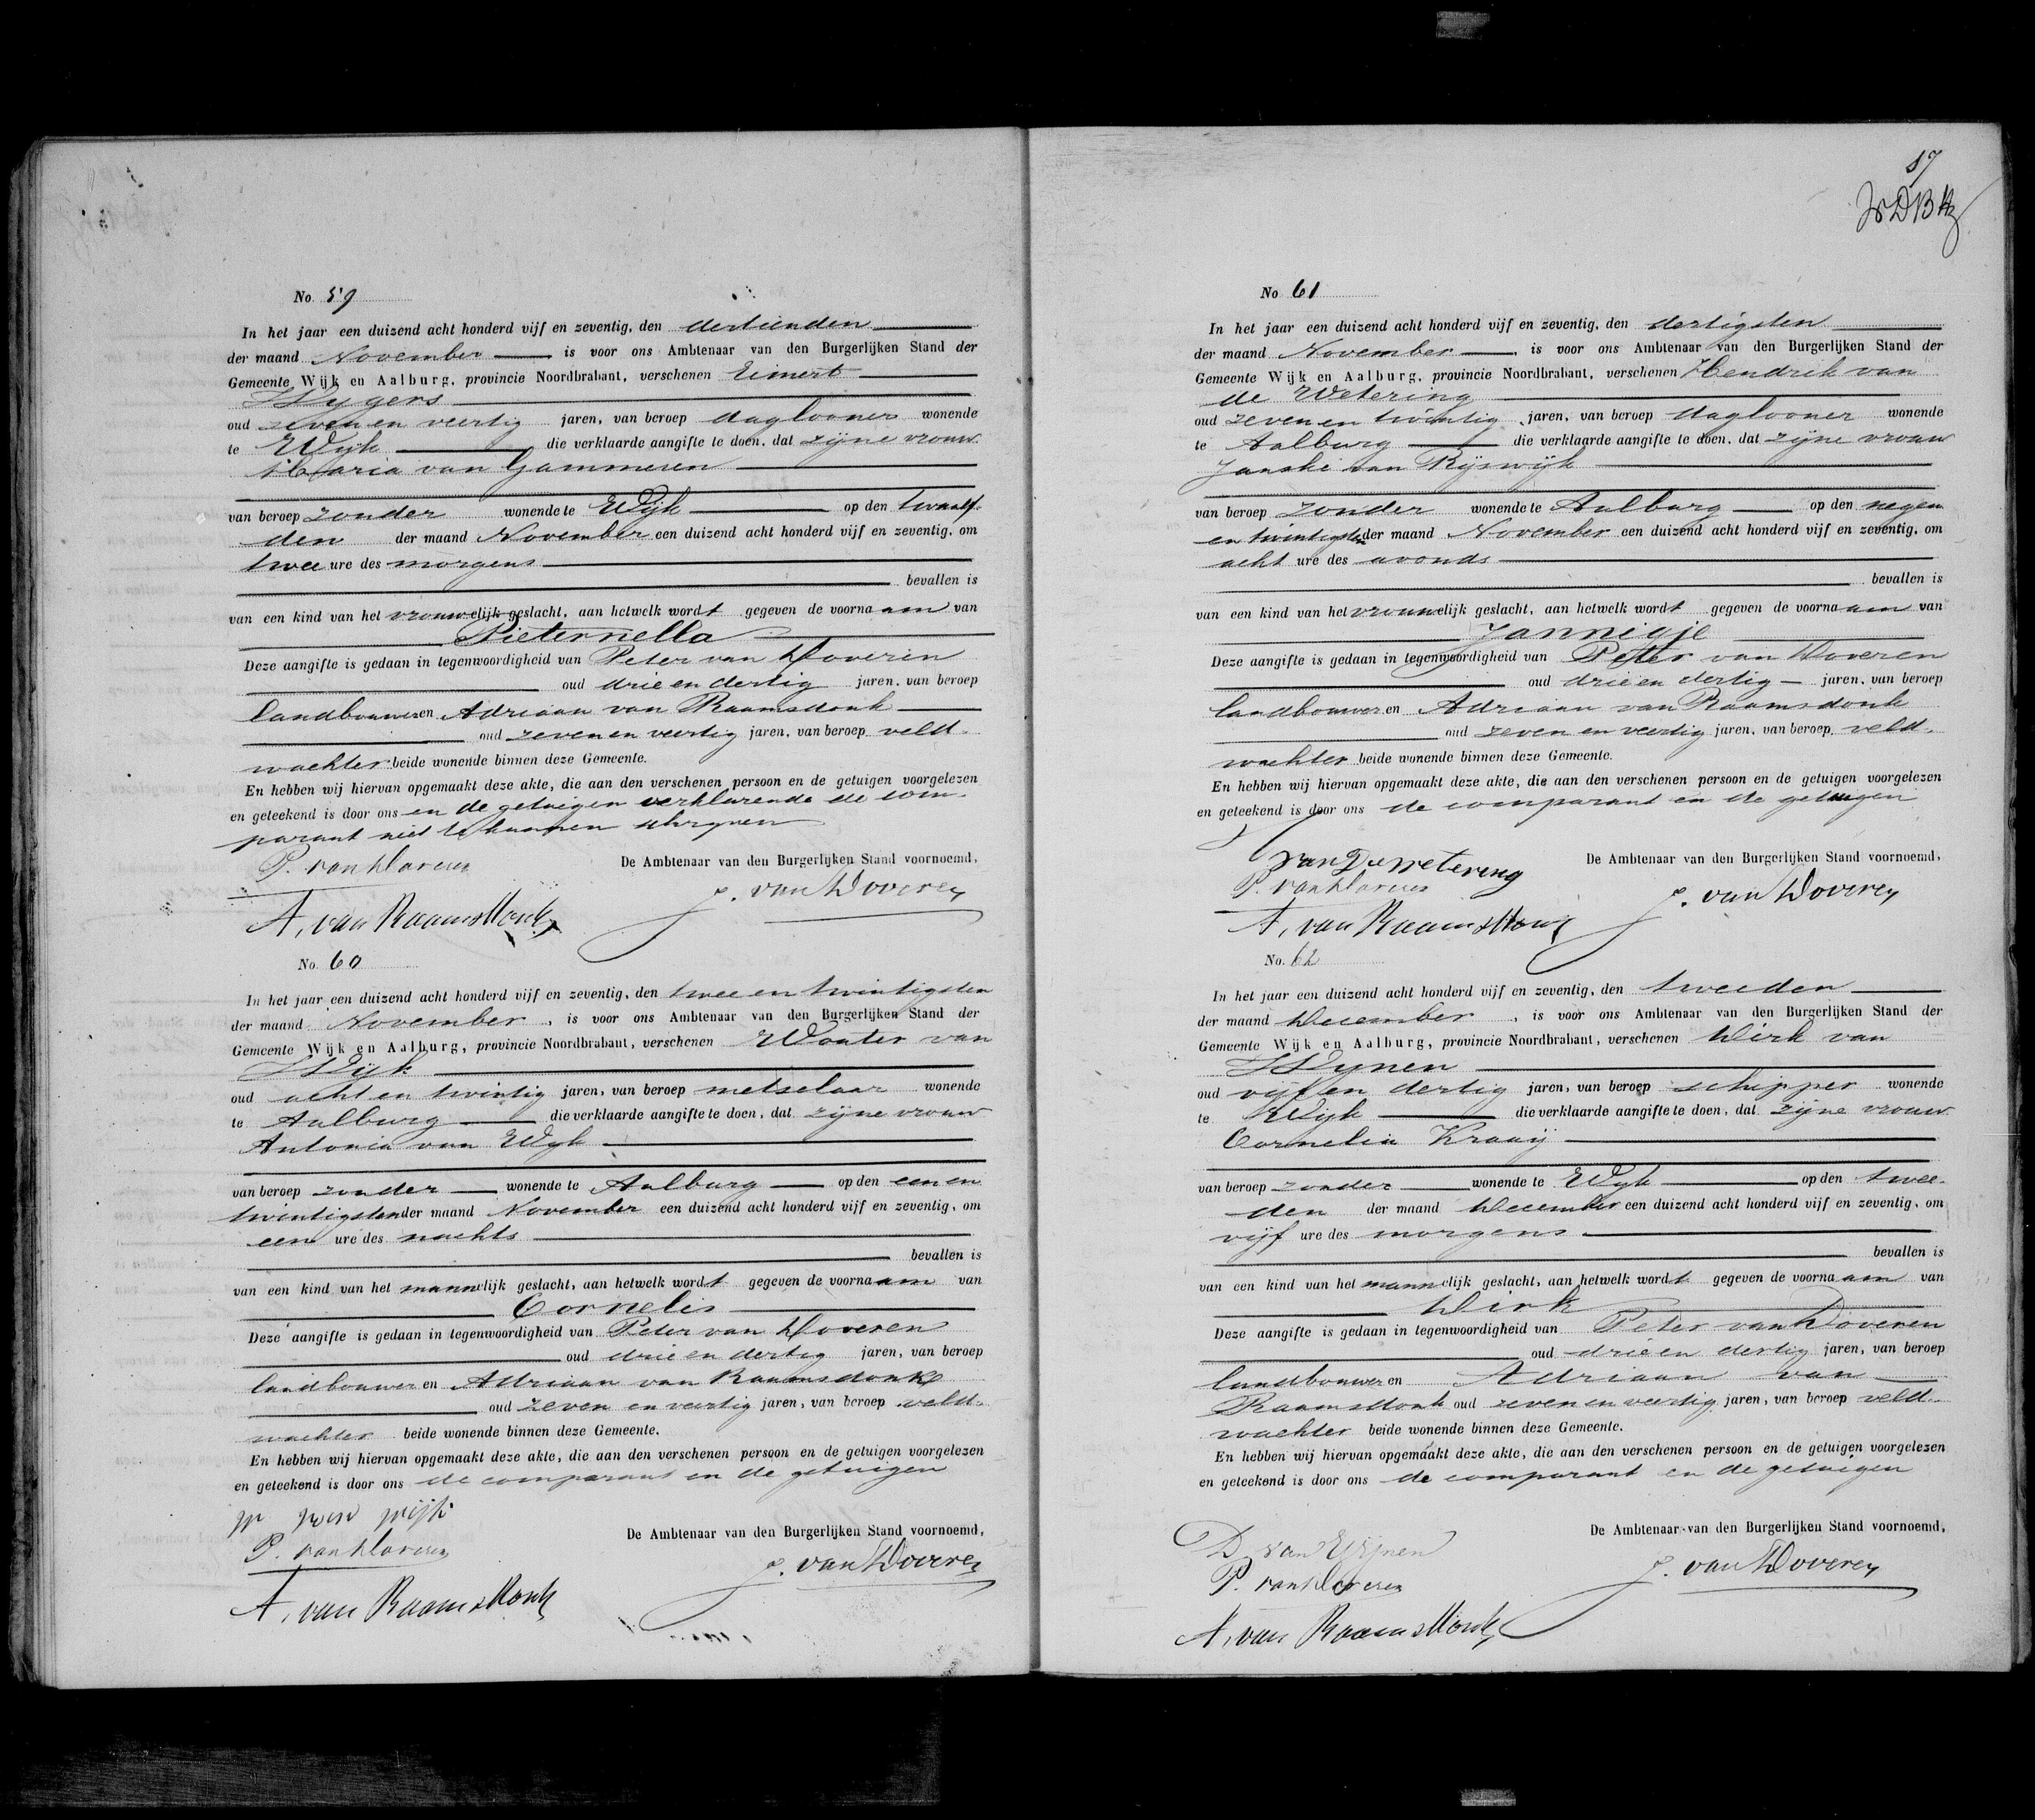 No. 59
In het jaar een duizend acht honderd vijf en zeventig, den dertienden
der maand November is voor ons Ambtenaar van den Burgerlijken Stand der
Gemeente Wijk en Aalburg, provincie Noordbrabant, verschenen Eimert
Wygers
oud zeven en veertig jaren, van beroep daglooner wonende
te Wijk die verklaarde aangifte te doen, dat zijne vrouw
Maria van Gammeren
van beroep zonder wonende te Wijk op den twaalf-
den der maand November een duizend acht honderd vijf en zeventig, om
twee ure des morgens
bevallen is
van een kind van het vrouwelijk geslacht, aan hetwelk wordt gegeven de voornaam van
Pieternella
Deze aangifte is gedaan in tegenwoordigheid van Peter van Doveren
oud drie en dertig jaren, van beroep
landbouwer en Adriaan van Raamsdonk
oud zeven en veertig jaren, van beroep veld-
wachter beide wonende binnen deze Gemeente.
En hebben wij hiervan opgemaakt deze akte, die aan den verschenen persoon en de getuigen voorgelezen
en geteekend is door ons en de getuigen verklarende de com-
parant niet te kunnen schryven
P. van Doveren De Ambtenaar van den Burgerlijken Stand voornoemd,
J. van Doveren
A. van Raamsdonk
No. 60
In het jaar een duizend acht honderd vijf en zeventig, den twee en twintigsten
der maand November, is voor ons Ambtenaar van den Burgerlijken Stand der
Gemeente Wijk en Aalburg, provincie Noordbrabant, verschenen Wouter van
Wijk
oud acht en twintig jaren, van beroep metselaar wonende
te Aalburg die verklaarde aangifte te doen, dat zijne vrouw
Antonia van Wyk
van beroep zonder wonende te Aalburg op den een en
twintigsten der maand November een duizend acht honderd vijf en zeventig, om
een ure des nachts
bevallen is
van een kind van het mannelijk geslacht, aan hetwelk wordt gegeven de voornaam van
Cornelis
Deze aangifte is gedaan in tegenwoordigheid van Peter van Doveren
oud drie en dertig jaren, van beroep
landbouwer en Adriaan van Raamsdonk
oud zeven en veertig jaren, van beroep veld-
wachter beide wonende binnen deze Gemeente.
En hebben wij hiervan opgemaakt deze akte, die aan den verschenen persoon en de getuigen voorgelezen
en geteekend is door ons de comparant en de getuigen
W van Wijk
De Ambtenaar van den Burgerlijken Stand voornoemd,
P. van Doveren
J. van Doveren
A. van Raamsdonk
17
No 61
In het jaar een duizend acht honderd vijf en zeventig, den dertigsten
der maand November, is voor ons Ambtenaar van den Burgerlijken Stand der
Gemeente Wijk en Aalburg, provincie Noordbrabant, verschenen Hendrik van
de Wetering
oud zeven en twintig jaren, van beroep daglooner wonende
te Aalburg die verklaarde aangifte te doen, dat zijne vrouw
Janske van Rijswijk
van beroep zonder wonende te Aalburg op den negen
en twintigsten der maand November een duizend acht honderd vijf en zeventig, om
acht ure des avonds
bevallen is
van een kind van het vrouwelijk geslacht, aan hetwelk wordt gegeven de voornaam van
Jannigje
Deze aangifte is gedaan in tegenwoordigheid van Peter van Doveren
oud drie en dertig jaren, van beroep
landbouwer en Adriaan van Raamsdonk
oud zeven en veertig jaren, van beroep veld-
wachter beide wonende binnen deze Gemeente.
En hebben wij hiervan opgemaakt deze akte, die aan den verschenen persoon en de getuigen voorgelezen
en geteekend is door ons de comparant en de getuigen
van De wetering De Ambtenaar van den Burgerlijken Stand voornoemd,
P. van Doveren
J. van Doveren
A. van Raamsdonk
No. 62
In het jaar een duizend acht honderd vijf en zeventig, den tweeden
der maand December, is voor ons Ambtenaar van den Burgerlijken Stand der
Gemeente Wijk en Aalburg, provincie Noordbrabant, verschenen Dirk van
Wynen
oud vijf en dertig jaren, van beroep schipper wonende
te Wijk die verklaarde aangifte te doen, dat zijne vrouw
Cornelia Kraaij
van beroep zonder wonende te Wyk op den twee-
den der maand December een duizend acht honderd vijf en zeventig, om
vijf ure des morgens
bevallen is
van een kind van het mannelijk geslacht, aan hetwelk wordt gegeven de voornaam van
Dirk
Deze aangifte is gedaan in tegenwoordigheid van Peter van Doveren
oud drie en dertig jaren, van beroep
landbouwer en Adriaan van
Raamsdonk oud zeven en veertig jaren, van beroep veld-
wachter beide wonende binnen deze Gemeente.
En hebben wij hiervan opgemaakt deze akte, die aan den verschenen persoon en de getuigen voorgelezen
en geteekend is door ons de comparant en de getuigen
De Ambtenaar van den Burgerlijken Stand voornoemd,
D van Wijnen
P. van Doveren
J. van Doveren
A. van Raamsdonk